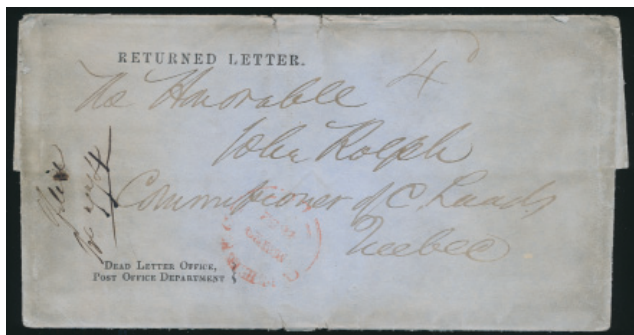 RETURNED LETTER.
4
The Honorable
John Rolph
Commissioner of C. Lands
Quebec
DEAD LETTER OFFICE,
POST OFFICE DEPARTMENT